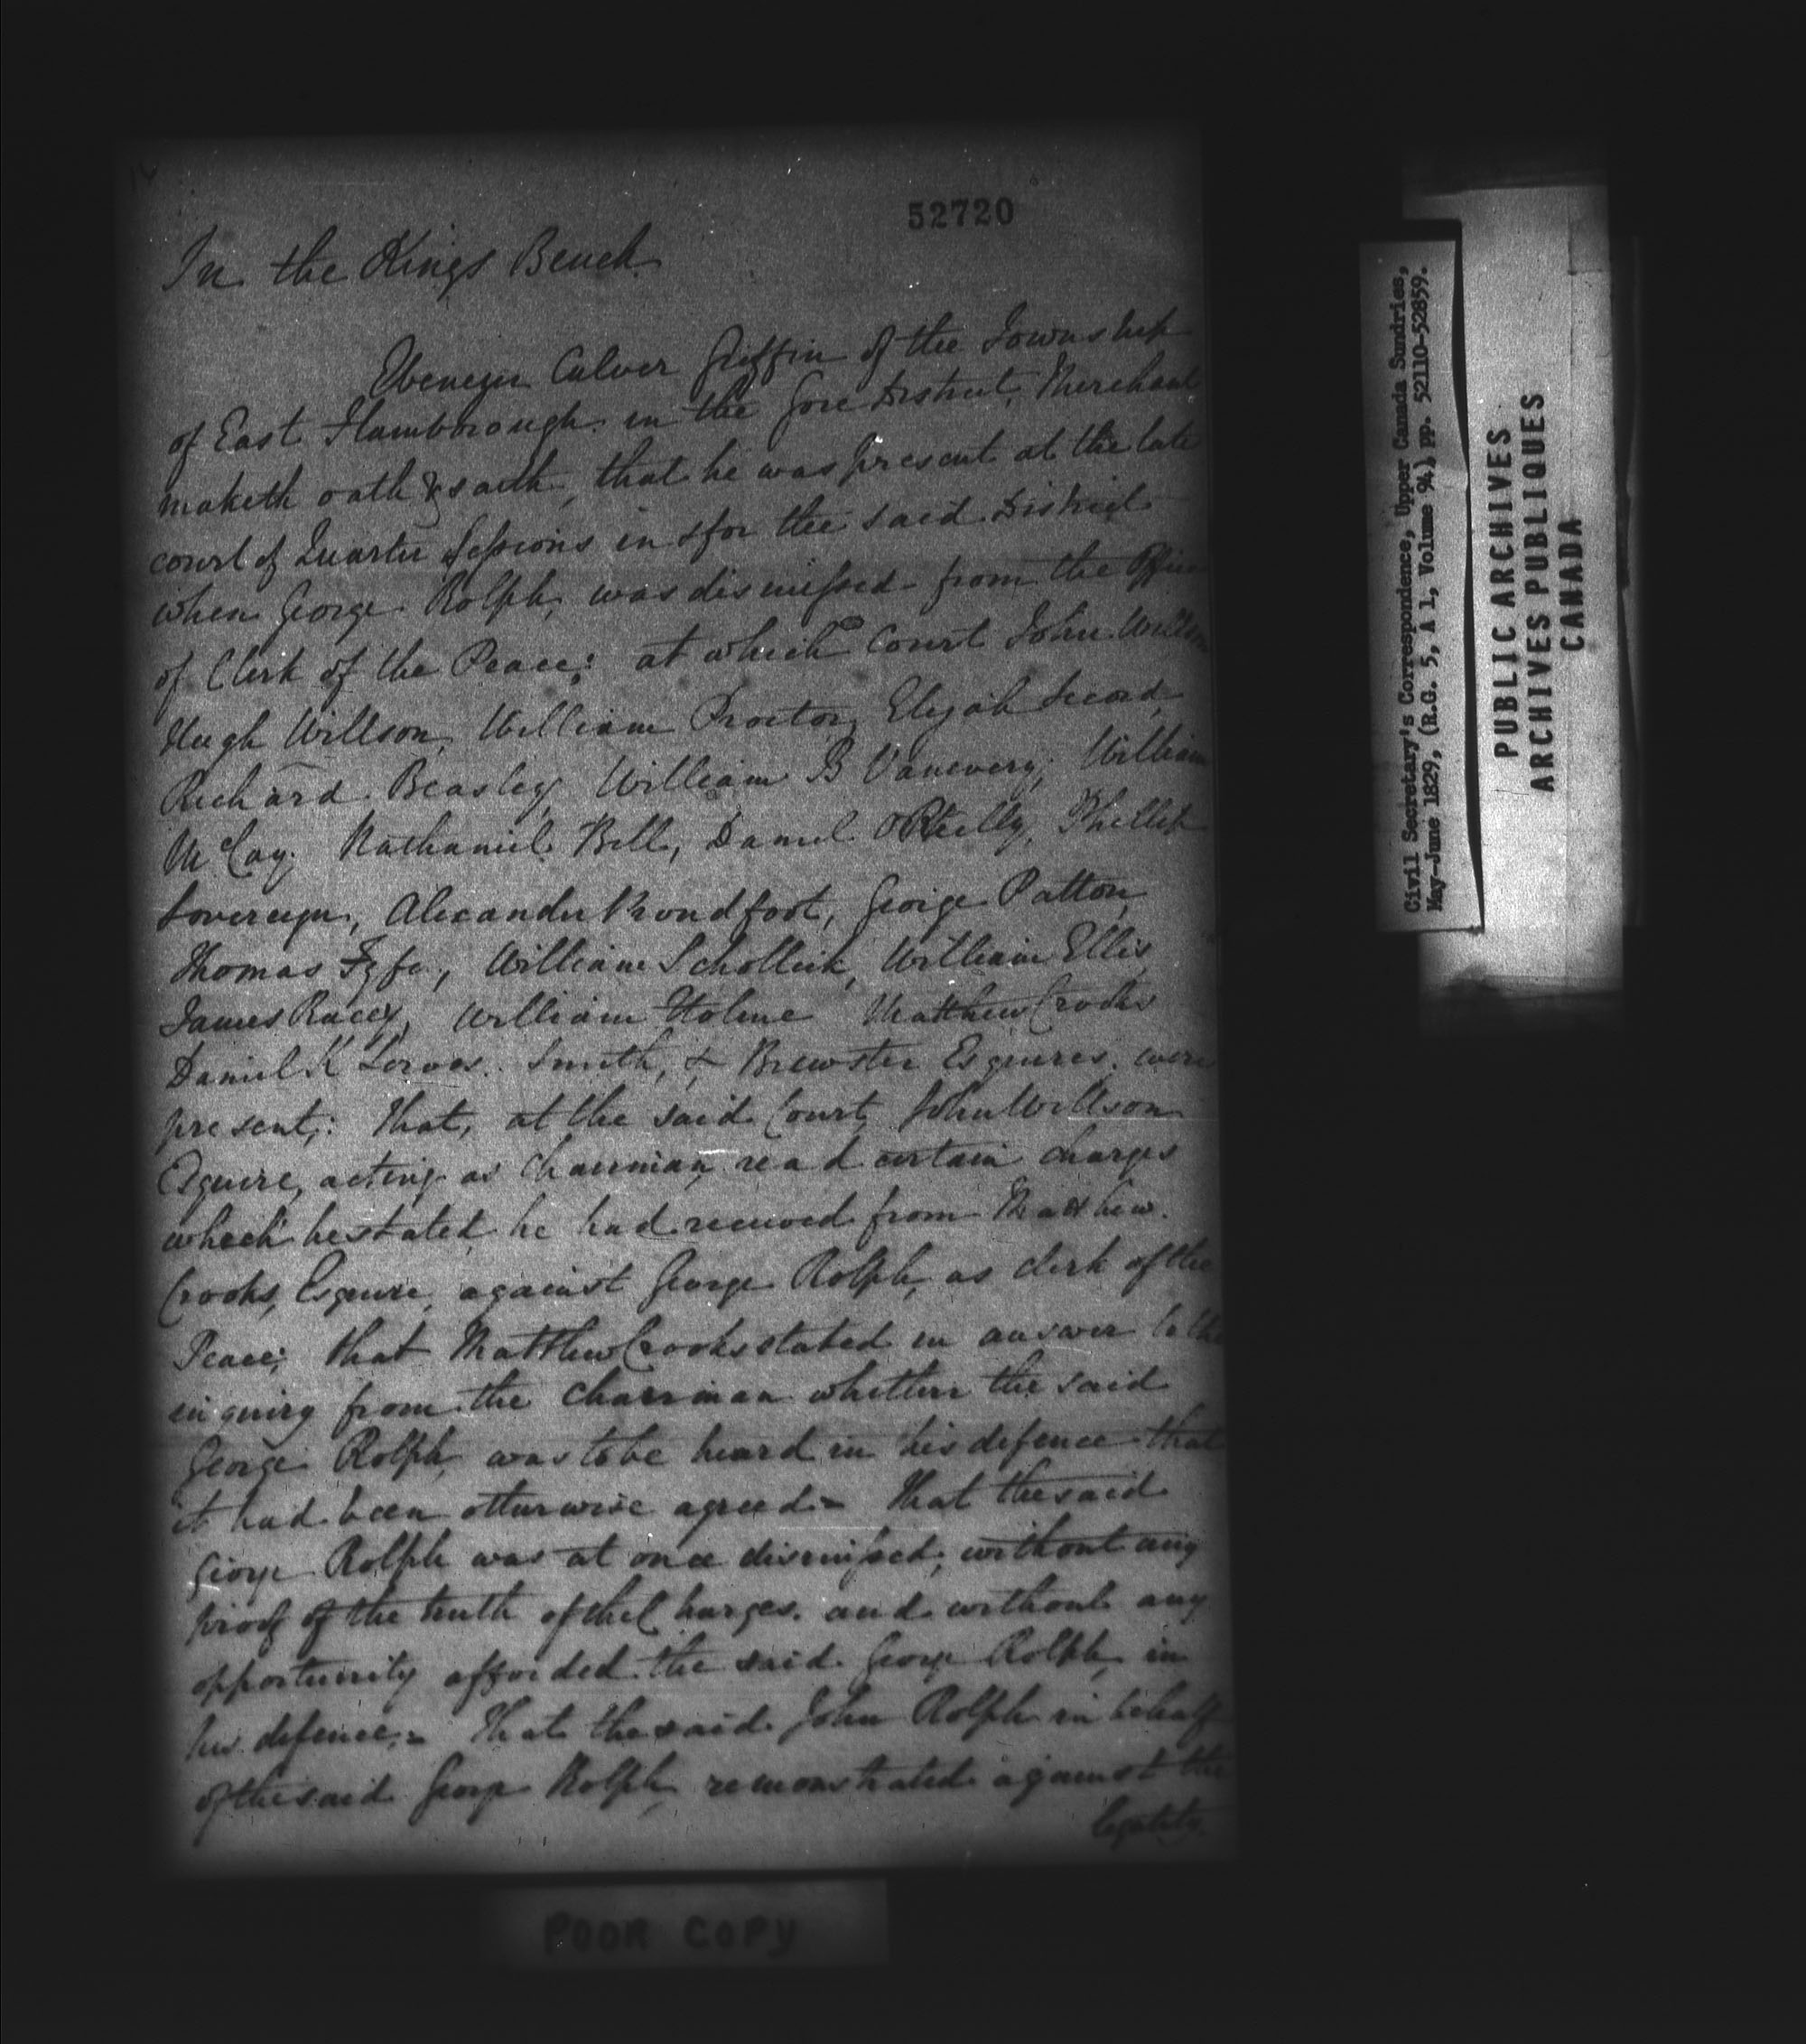 52720
In the Kings Bench
Ebenezer Culver Griffin of the Township
of East Flamborough in the Gore District, Merchant
maketh oath & saith, that he was present at the late
court of Quarter Sessions in & for the said District
when George Rolph, was dismissed from the Office
of Clerk of the Peace; at which Court John Willson
Hugh Willson, William Proctor, Elijah Secord,
Richard Beasley, William B Vanevery, William
McCay, Nathaniel Bell, Daniel O'Reilly, Phillip
Sovereign, Alexander Proudfoot, George Patton
Thomas Fyfe, William Schollick, William Ellis
James Racey, William Holme Matthew Crooks
Daniel K Servos. Smith, & Brewster Esquires. were
present; That, at the said Court, John Willson
Esquire, acting as Chairman, read certain charges
which he stated he had received from Matthew
Crooks, Esquire, against George Rolph, as clerk of the
Peace; that Matthew Crooks stated in answer to the
inquiry from the Chairman whether the said
George Rolph, was to be heard in his defence that
it had been otherwise agreed - That the said
George Rolph was at once dismissed, without any
proof of the truth of the Charges. and without any
opportunity afforded the said George Rolph, in
his defence, - That the said John Rolph in behalf
of the said George Rolph, remonstrated against the
legality
POOR COPY
Civil Secretary's Correspondence, Upper Canada Sundries,
May-June 1829, (R.G. 5, A 1, Volume 94) pp. 52110-52859.
PUBLIC ARCHIVES
ARCHIVES PUBLIQUES
CANADA